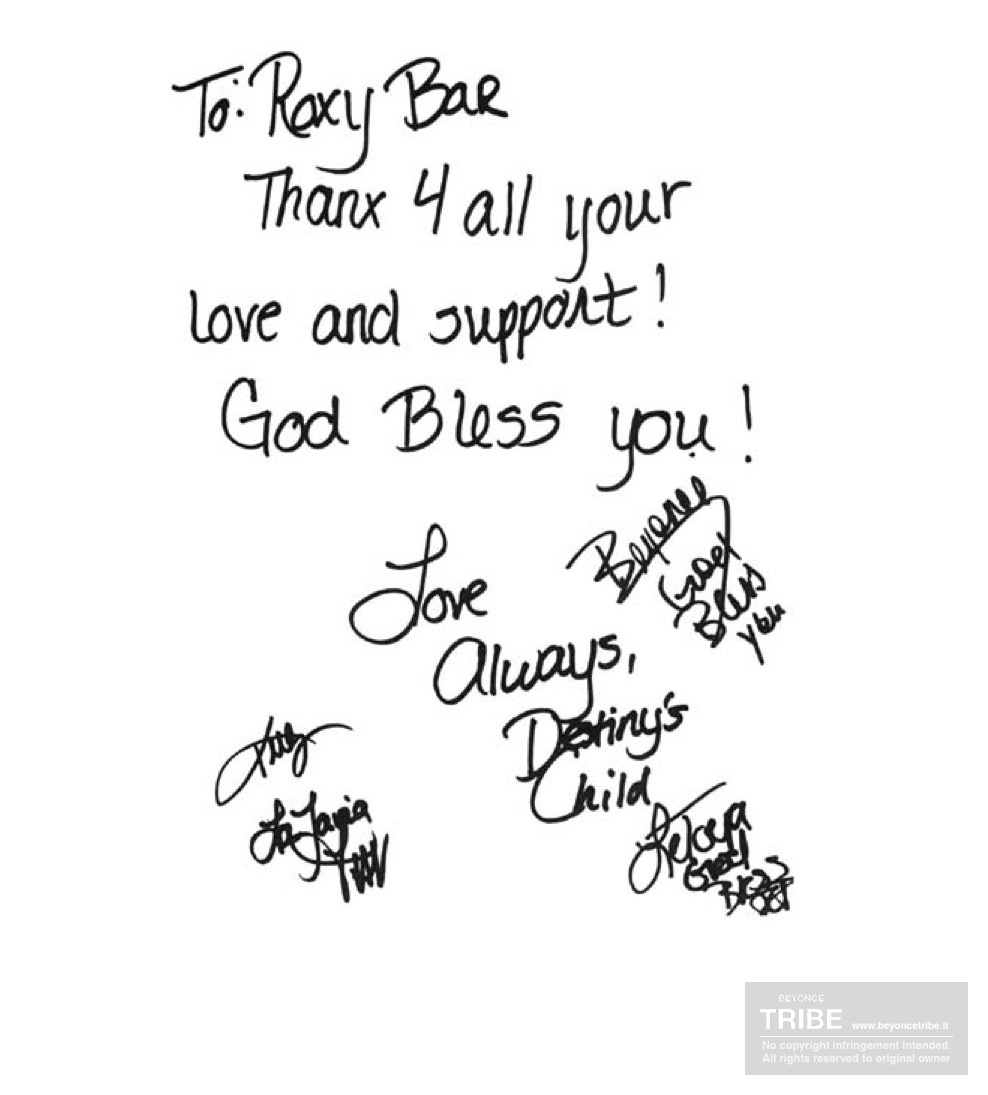 To: Roxy Bar
Thanx 4 all your
love and support!
God Bless you!
Love
Always,
Destiny's
Child
Beyonce
God
Bless
you
LaTavia
LeToya
God
BEYONCE
TRIBE www.beyoncetribe.it
No copyright infringement intended.
All rights reserved to original owner